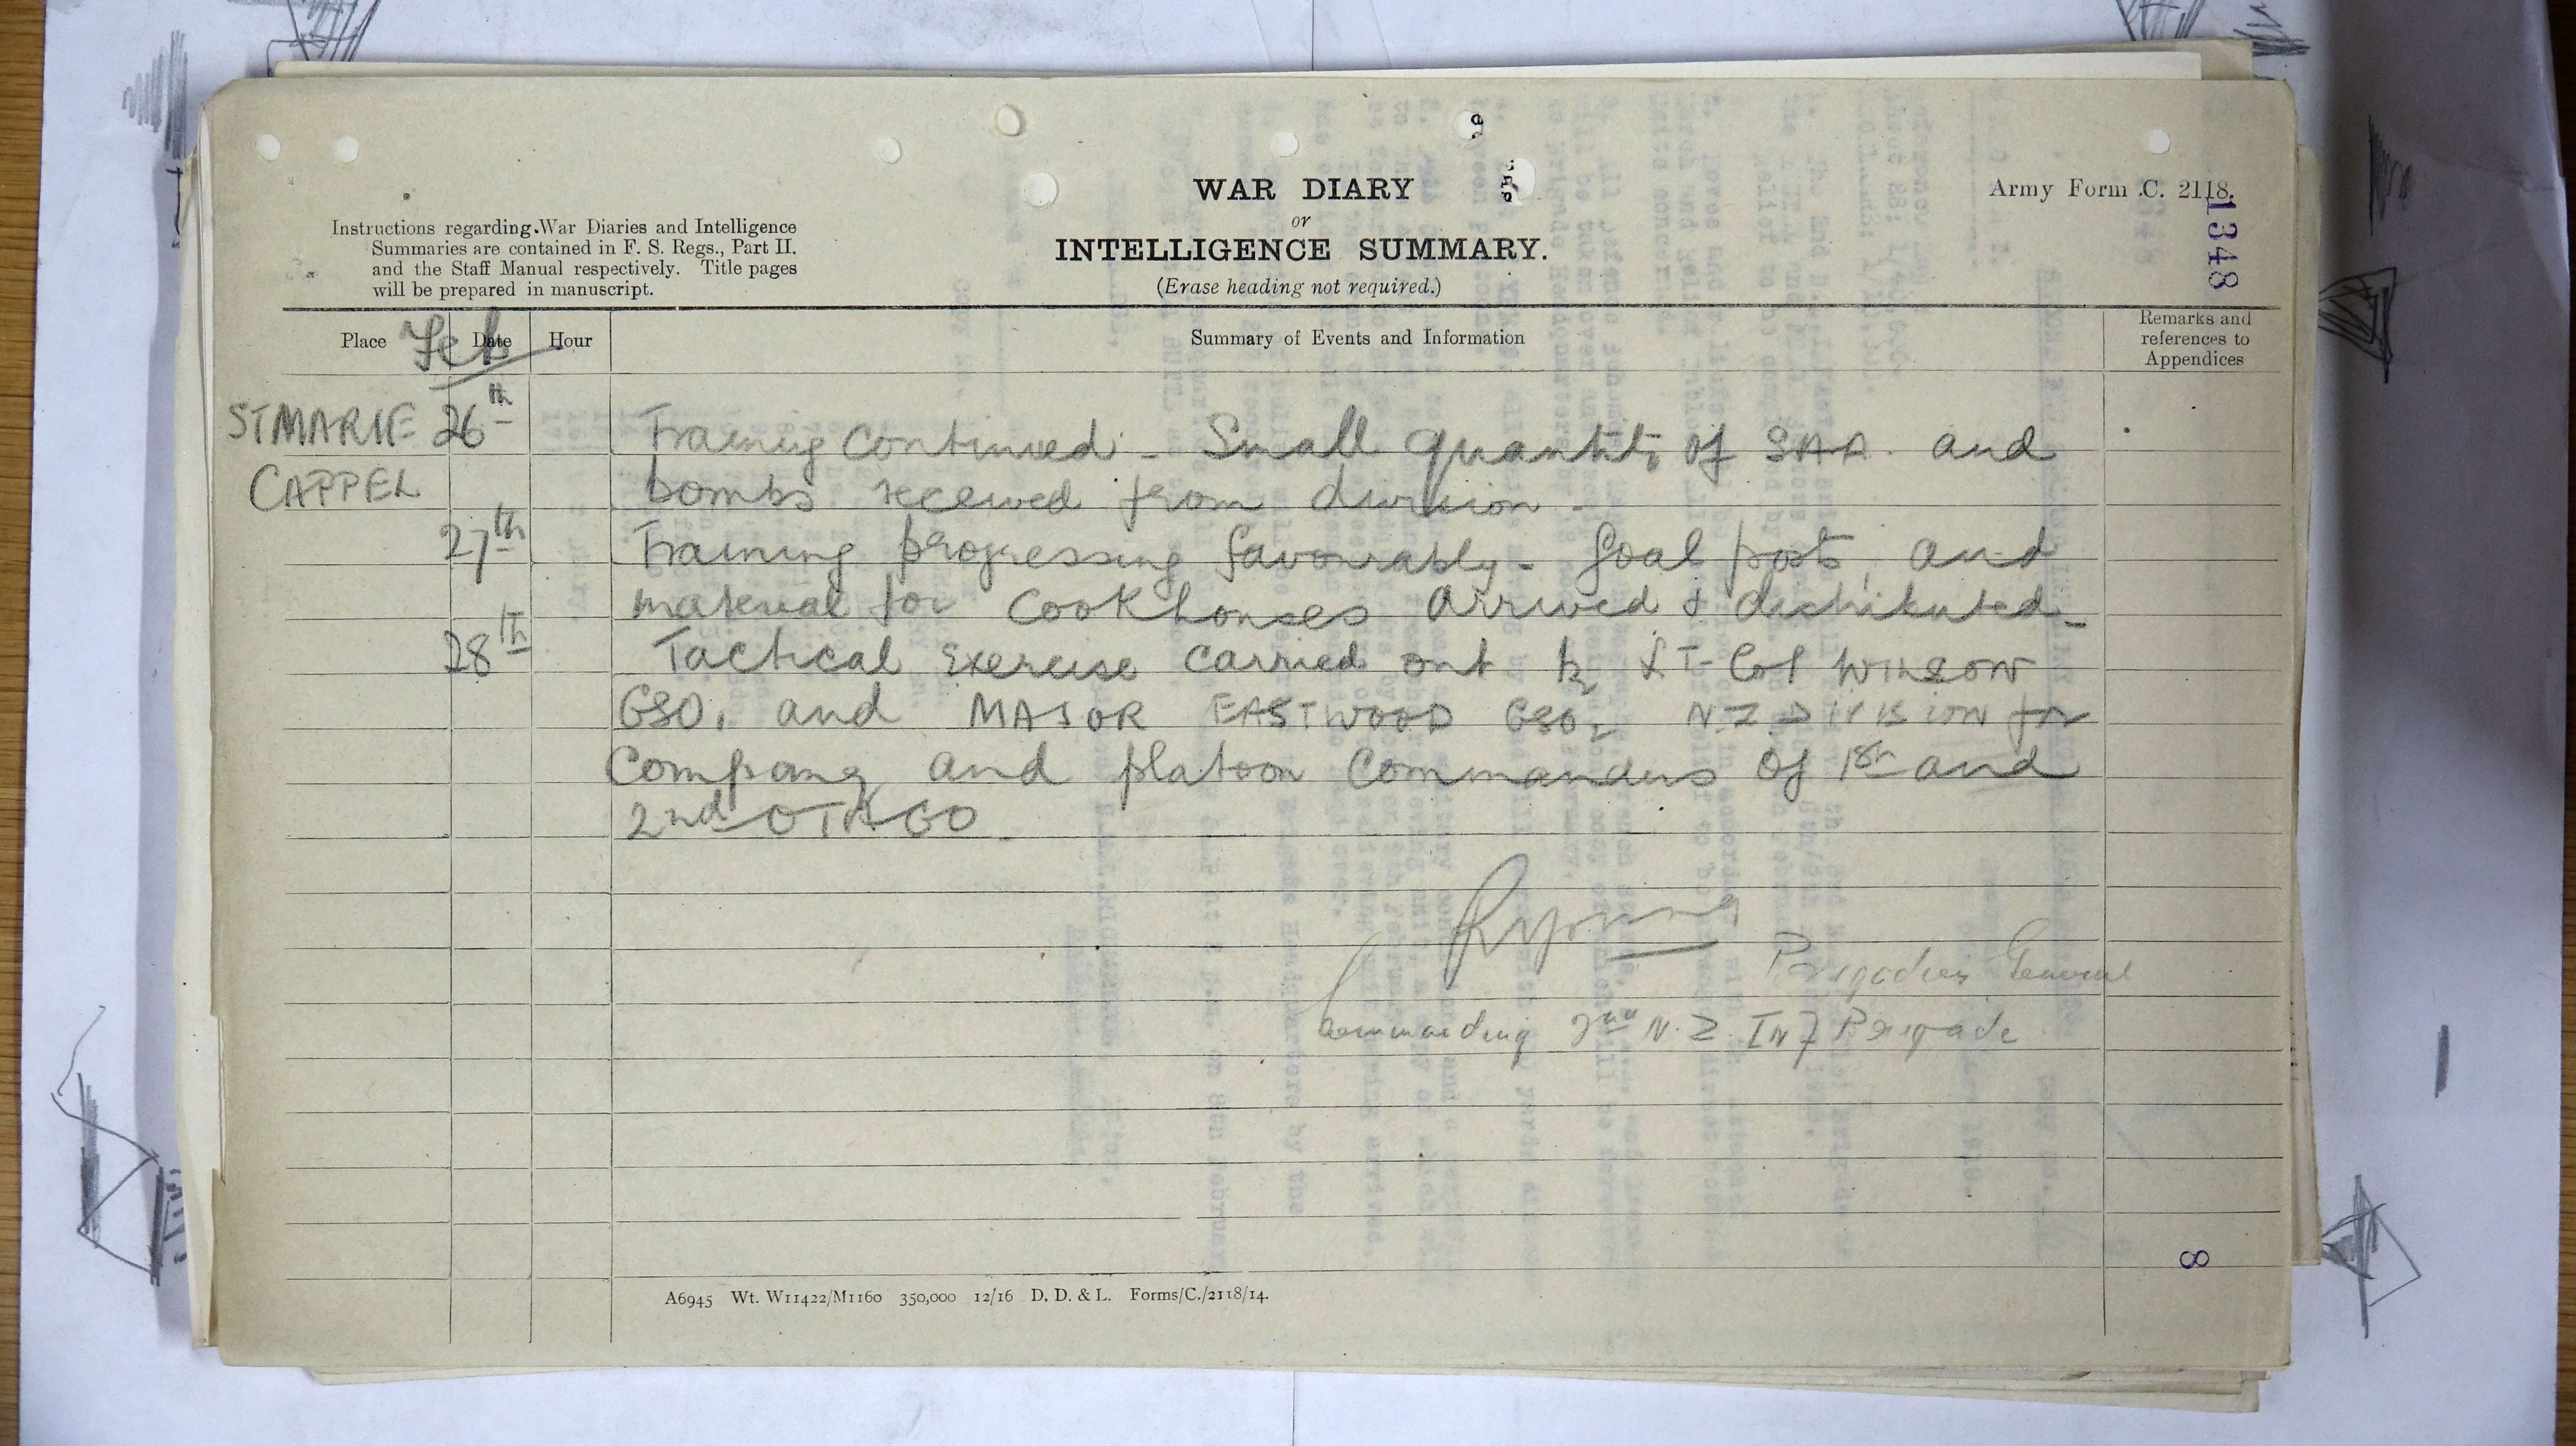 WAR DIARY
or
INTELLIGENCE SUMMARY.
(Erase heading not required.)
Army Form C. 2118.
1348
Instructions regarding War Diaries and Intelligence
Summaries are contained in F. S. Regs., Part II.
and the Staff Manual respectively. Title pages
will be prepared in manuscript.
Place Date Hour Summary of Events and Information Remarks and
references to
Appendices
Feb
ST MARIE 26th Training continued - Small quantity of SAA and
CAPPEL bombs received from division -
27th Training progressing favourably - Goal posts and
material for Cookhouses arrived & distributed -
28th Tactical Exercise carried out by LT-Col WILSON
GSO1 and MAJOR EASTWOOD GSO2 N.Z. DIVISION for
Company and platoon Commanders of 1st and
2nd OTAGO
RYoung
Brigadier General
Commanding 2nd N.Z. Inf Brigade
8
A6945 Wt. W11422/M1160 350,000 12/16 D. D. & L. Forms/C./2118/14.